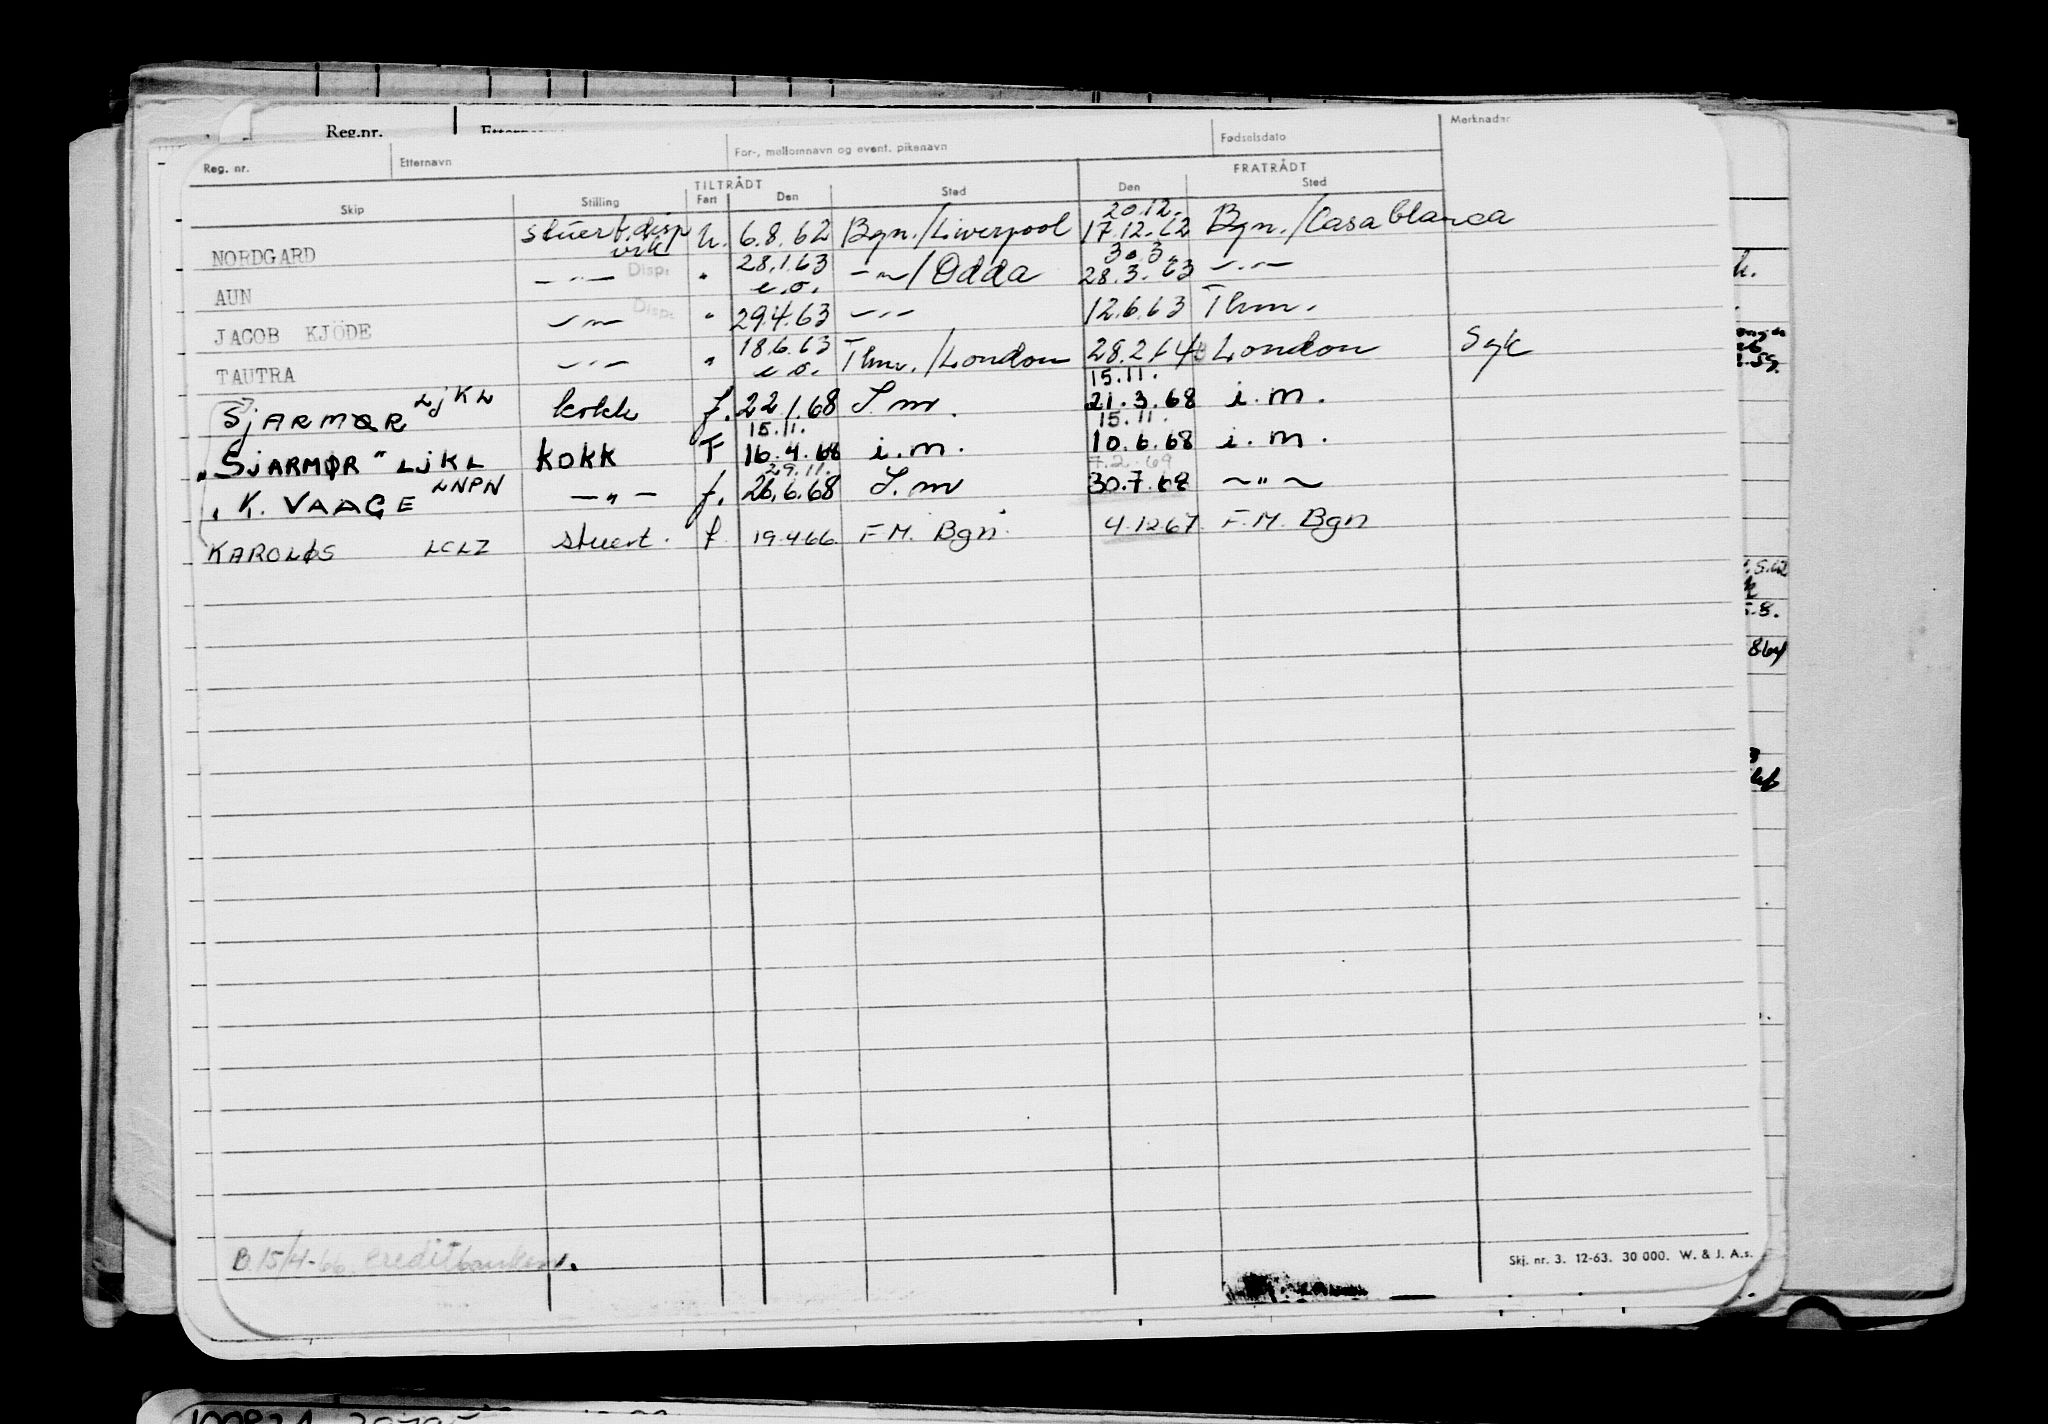 Reg.nr.
Reg. nr. Etternavn For-, mellomnavn og event. pikenavn Fødselsdato Merknader
TILTRÅDT FRATRÅDT
Skip Stilling Fart Den Sted Den Sted
20.12.
NORDGARD stuert disp u. 6.8.62 Bgn./Liverpool 17.12.62 Bgn./Casablanca
28.1.63 30.3.
AUN -"- Disp: " e.o. -"-/Odda 28.3.63 -"-
JACOB KJÖDE -"- Disp: " 29.4.63 -"- 12.6.63 Thm.
18.6.63
TAUTRA -"- " e.o. Thm./London 28.2.64 London Syk
15.11.
SjARMØR LjKL kokk f. 22.1.68 S.m. 21.3.68 i.m.
15.11. 15.11.
"SjARMØR" LjKL kokk F 16.4.68 i.m. 10.6.68 i.m.
29.11. 7.2.69
K. VAAGE LNPN -"- f. 26.6.68 S.m 30.7.68 -"-
KAROLØS LCLZ stuert. f 19.4.66 F.M. Bgn. 4.12.67 F.M. Bgn
B 15/4-66 Creditbanken.
Skj. nr. 3. 12-63. 30 000. W. & J. A.s.